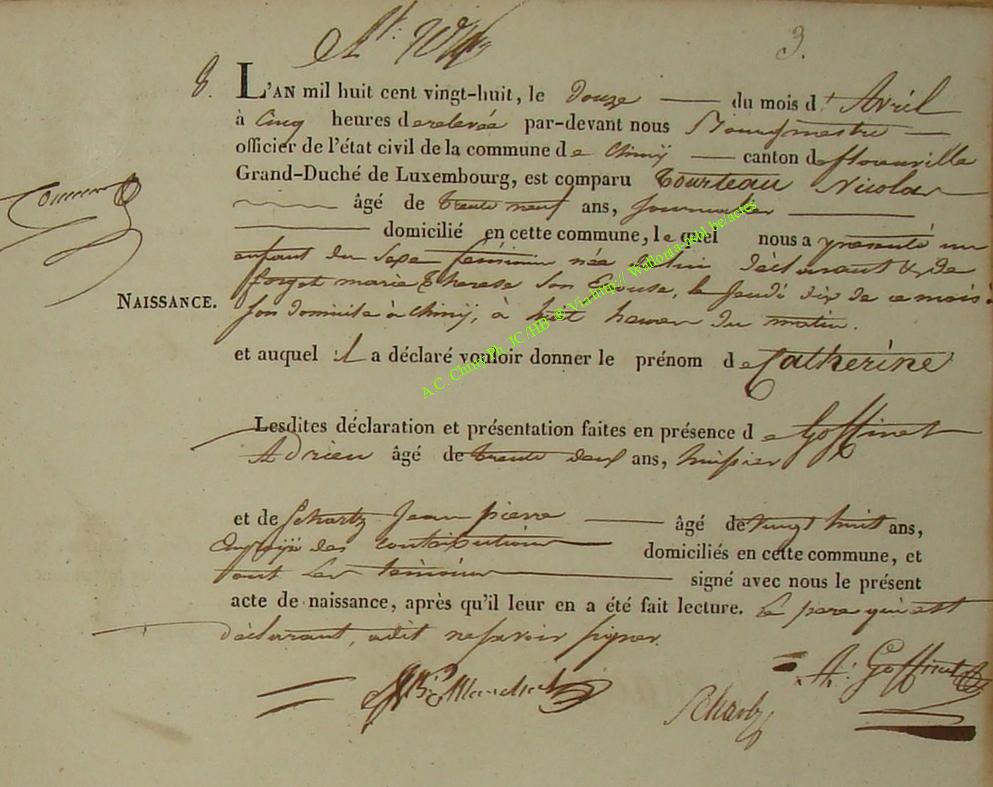 3.
8. L'AN mil huit cent vingt-huit, le douze du mois d' Avril
à Cinq heures de relevée par-devant nous Bourgmestre
officier de l'état civil de la commune de Chiny canton de florenville
Grand-Duché de Luxembourg, est comparu Tourteau Nicolas
âgé de trente neuf ans, Journalier
domicilié en cette commune, lequel nous a presenté un
enfant du sexe féminin née de lui déclarant & de
forget marie Therese son Epouse, le Jeudi dix de ce mois à
son domicile à Chiny, à huit heures du matin.
NAISSANCE.
et auquel il a déclaré vouloir donner le prénom de Catherine
Lesdites déclaration et présentation faites en présence de Goffinet
Adrien âgé de trente deux ans, huissier
et de Schartz Jean pierre âgé de vingt huit ans,
Employé des contributions domiciliés en cette commune, et
ont les témoins signé avec nous le présent
acte de naissance, après qu'il leur en a été fait lecture. Le pere qui est
déclarant, a dit ne savoir signer.
A: Goffinet
Schartz
A.C. Chiny Ph. JC/HB & Via http:// Wallonia-nobl.be/actes